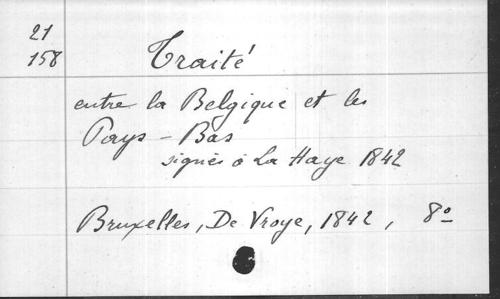 21
158
Traité
entre la Belgique et les
Pays-Bas
signés à La Haye 1842
Bruxelles, De Vroye, 1842, 8°